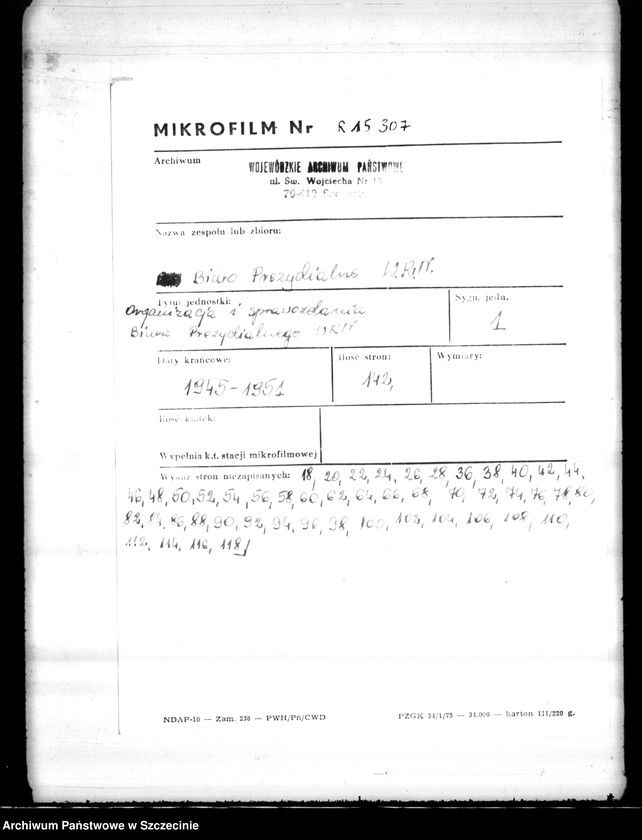 MIKROFILM Nr R 15 307
Archiwum
WOJEWÓDZKIE ARCHIWUM PAŃSTWOWE
ul. Św. Wojciecha Nr
Nazwa zespołu lub zbioru:
Biuro Prezydialne W.R.N.
Tytuł jednostki:
Sygn. jedn.
Organizacja i sprawozdania
Biura Prezydialnego WRN
1
Daty krańcowe:
Ilość stron:
Wymiary:
1945-1951
142,
Ilość klatek:
Wypełnia k.t. stacji mikrofilmowej
Wykaz stron niezapisanych: 18, 20, 22, 24, 26, 28, 36, 38, 40, 42, 44,
46, 48, 50, 52, 54, 56, 58, 60, 62, 64, 66, 68, 70, 72, 74, 76, 78, 80,
82, 84, 86, 88, 90, 92, 94, 96, 98, 100, 102, 104, 106, 108, 110,
112, 114, 116, 118/
NDAP-10 — Zam. 238 — PWH/Pń/CWD
PZGK 34/1/75 — 31.000 — karton III/220 g.
Archiwum Państwowe w Szczecinie